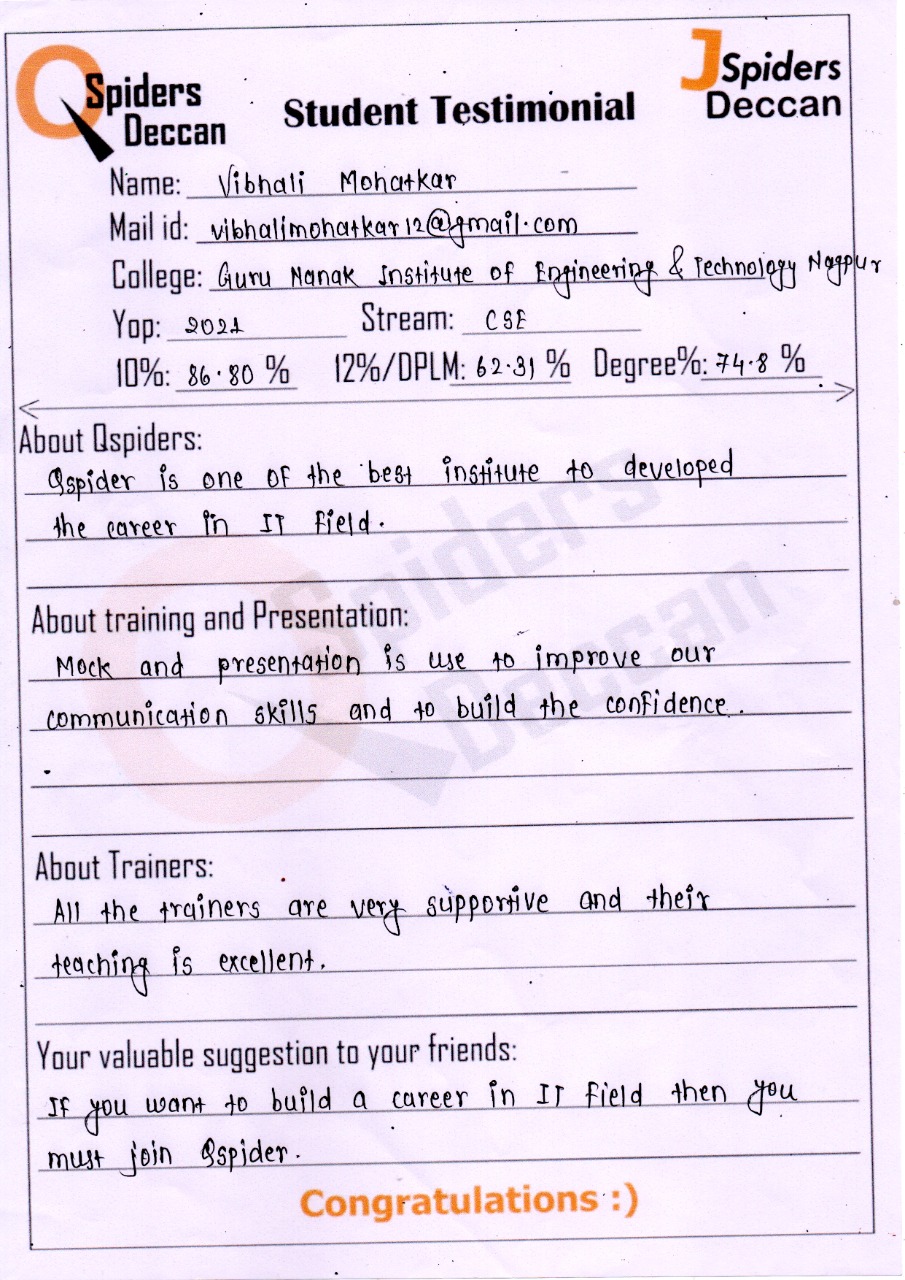 QSpiders
Deccan
Student Testimonial
JSpiders
Deccan
Name: Vibhali Mohatkar
Mail id: vibhalimohatkar12@gmail.com
College: Guru Nanak Institute of Engineering & Technology Nagpur
Yop: 2021 Stream: CSE
10%: 86.80 % 12%/DPLM: 62.31 % Degree%: 74.8 %
About Qspiders:
Qspider is one of the best institute to developed
the career in IT field.
About training and Presentation:
Mock and presentation is use to improve our
communication skills and to build the confidence.
About Trainers:
All the trainers are very supportive and their
teaching is excellent.
Your valuable suggestion to your friends:
If you want to build a career in IT field then you
must join Qspider.
Congratulations :)
QSpiders
Deccan